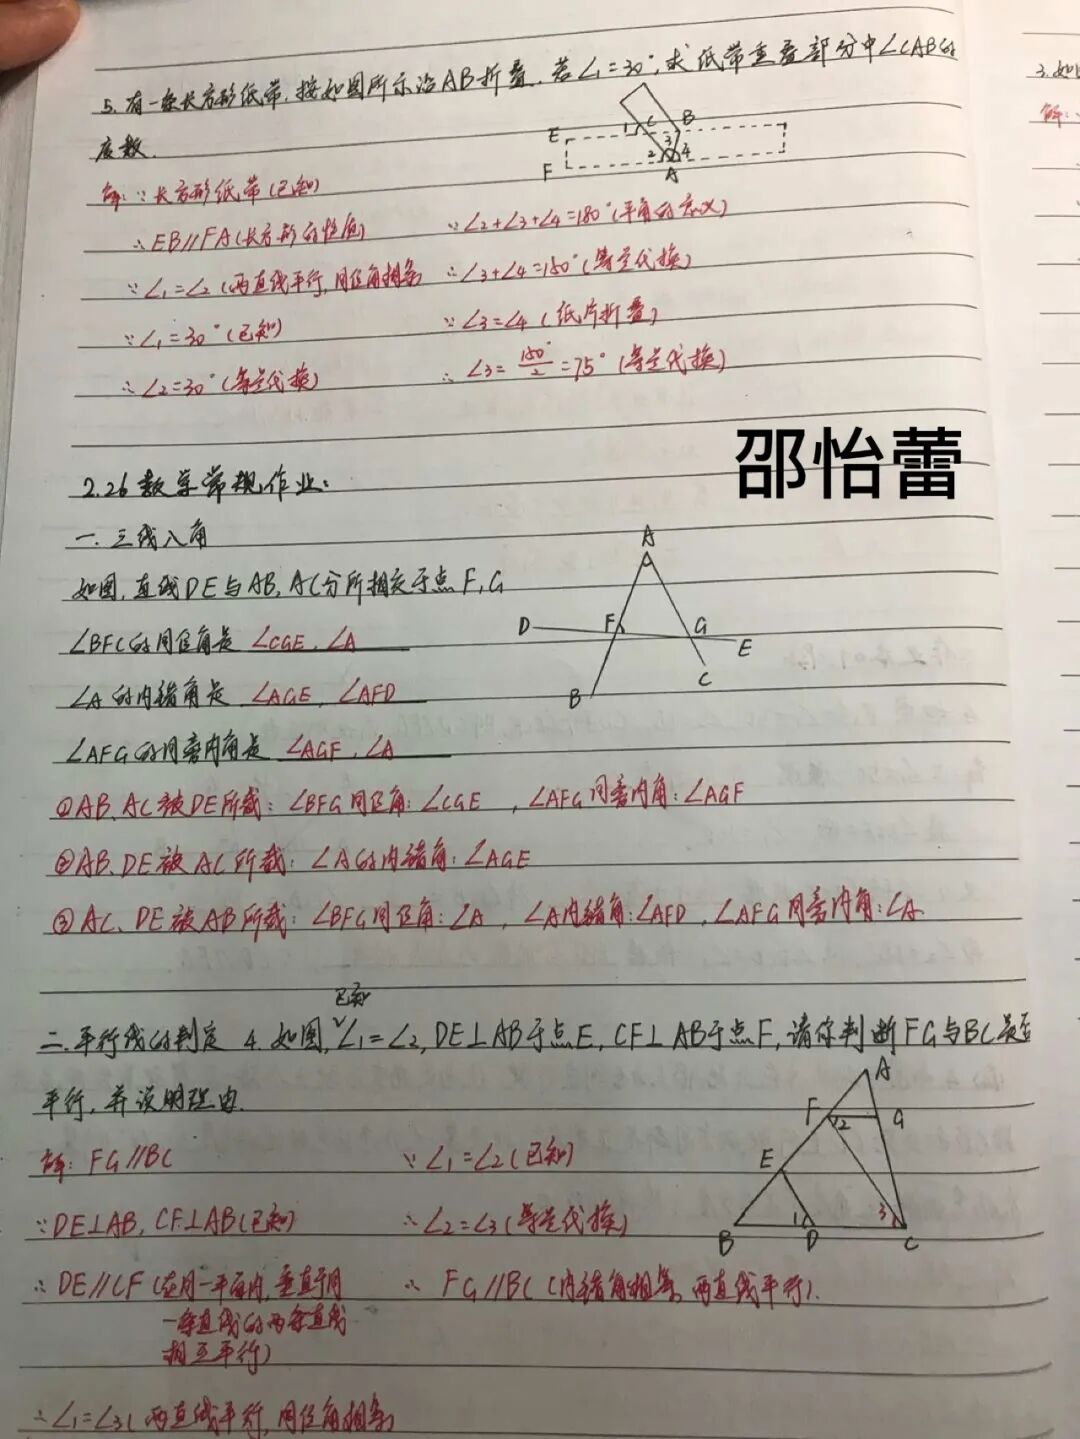 5. 有一条长方形纸带,按如图所示沿AB折叠,若∠1=30°,求纸带重叠部分中∠CAB的
度数.
E F C B A 1 2 3 4
解:∵长方形纸带(已知)
∴EB//FA(长方形的性质)
∵∠1=∠2(两直线平行,同位角相等
∵∠1=30°(已知)
∴∠2=30°(等量代换)
∵∠2+∠3+∠4=180°(平角的意义)
∴∠3+∠4=150°(等量代换)
∵∠3=∠4(纸片折叠)
∴∠3=150°/2=75°(等量代换)
邵怡蕾
2.26数学常规作业:
一.三线八角
如图,直线DE与AB,AC分所相交于点F,G
∠BFG的同位角是 ∠CGE,∠A
∠A的内错角是 ∠AGE,∠AFD
∠AFG的同旁内角是 ∠AGF,∠A
A D F G E C B
①AB、AC被DE所截:∠BFG同位角:∠CGE ,∠AFG同旁内角:∠AGF
②AB、DE被AC所截:∠A的内错角:∠AGE
③AC、DE被AB所截:∠BFG同位角:∠A,∠A内错角:∠AFD,∠AFG同旁内角:∠A
已知
二.平行线的判定 4.如图,∠1=∠2,DE⊥AB于点E,CF⊥AB于点F,请你判断FG与BC是否
平行,并说明理由.
A F G E B D C 1 2 3
解:FG//BC
∵DE⊥AB,CF⊥AB(已知)
∴DE//CF(在同一平面内,垂直于同
一条直线的两条直线
相互平行)
∴∠1=∠3(两直线平行,同位角相等)
∵∠1=∠2(已知)
∴∠2=∠3(等量代换)
∴FG//BC(内错角相等,两直线平行).
3.如
解: